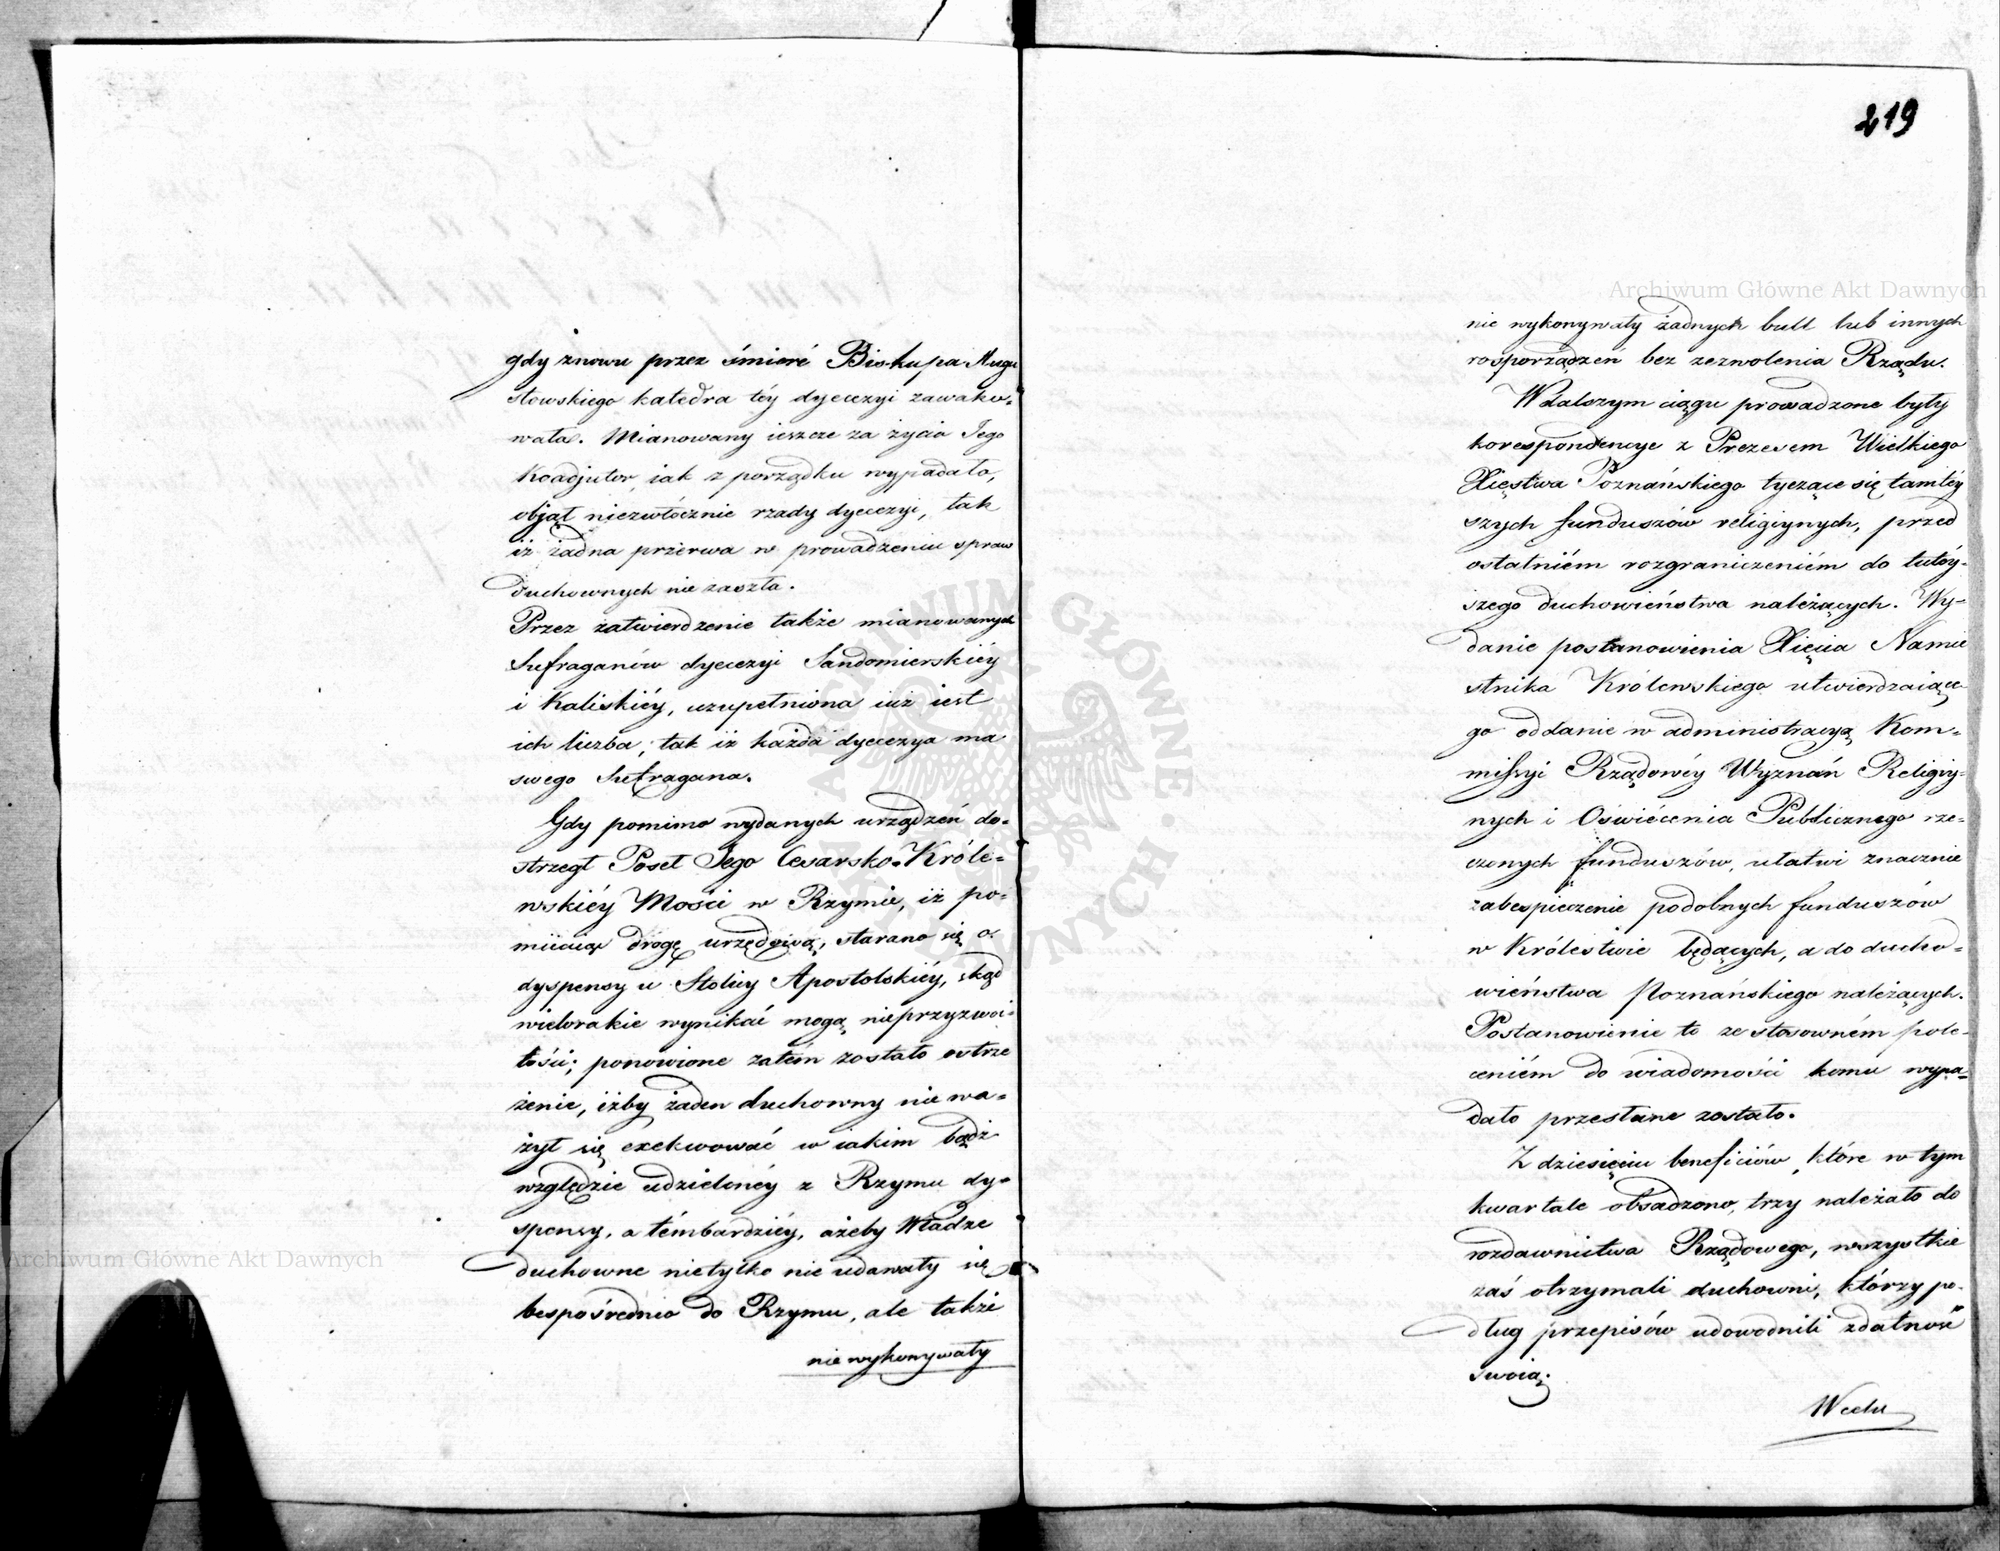 gdy znowu przez śmierć Biskupa Augu
stowskiego katedra téy dyecezyi zawako-
wała. Mianowany ieszcze za życia Jego
Koadjutor, iak z porządku wypadało,
objął niezwłocznie rządy dyecezyi, tak
iż żadna przerwa w prowadzeniu spraw
duchownych nie zaszła.
Przez zatwierdzenie także mianowanych
Sufraganów dyecezyi Sandomierskiéy
i Kaliskiéy, uzupełniona iuż iest
ich liczba; tak iż każda dyecezya ma
swego Sufragana.
Gdy pomimo wydanych urządzeń do-
strzegł Poseł Jego Cesarsko-Króle-
wskiéy Mości w Rzymie, iż po-
miiaiąc drogę urzędową, starano się o
dyspensy u Stolicy Apostolskiéy, skąd
wielorakie wynikać mogą nieprzyzwoi-
tości; ponowione zatém zostało ostrze
żenie, iżby żaden duchowny nie wa-
żył się exekwować w iakim bądź
względzie udzielonéy z Rzymu dy-
spensy, a témbardziéy, ażeby Władze
duchowne nietylko nie udawały się
bespośrednio do Rzymu, ale także
nie wykonywały
219
nie wykonywały żadnych bull lub innych
rosporządzeń bez zezwolenia Rządu.
W dalszym ciągu prowadzone były
korespondencye z Prezesem Wielkiego
Xięstwa Poznańskiego tyczące się tamtéy
szych funduszów religiynych, przed
ostatniém rozgraniczeniém do tutéy-
szego duchowieństwa należących. Wy-
danie postanowienia Xięcia Namie
stnika Królewskiego utwierdzaiące-
go oddanie w administracyą Kom-
missyi Rządowéy Wyznań Religiy-
nych i Oświécenia Publicznego rze-
czonych funduszów, ułatwi znacznie
zabespieczenie podobnych funduszów
w Królestwie będących, a do ducho-
wieństwa Poznańskiego należących.
Postanowienie to ze stosowném pole-
ceniém do wiadomości komu wypa-
dało przesłane zostało.
Z dziesięciu beneficiów, które w tym
kwartale obsadzono, trzy należało do
rozdawnictwa Rządowego, wszystkie
zaś otrzymali duchowni, którzy po-
dług przepisów udowodnili zdatność
swoią.
Wcelu
Archiwum Główne Akt Dawnych
Archiwum Główne Akt Dawnych
ARCHIWUM GŁÓWNE AKT DAWNYCH